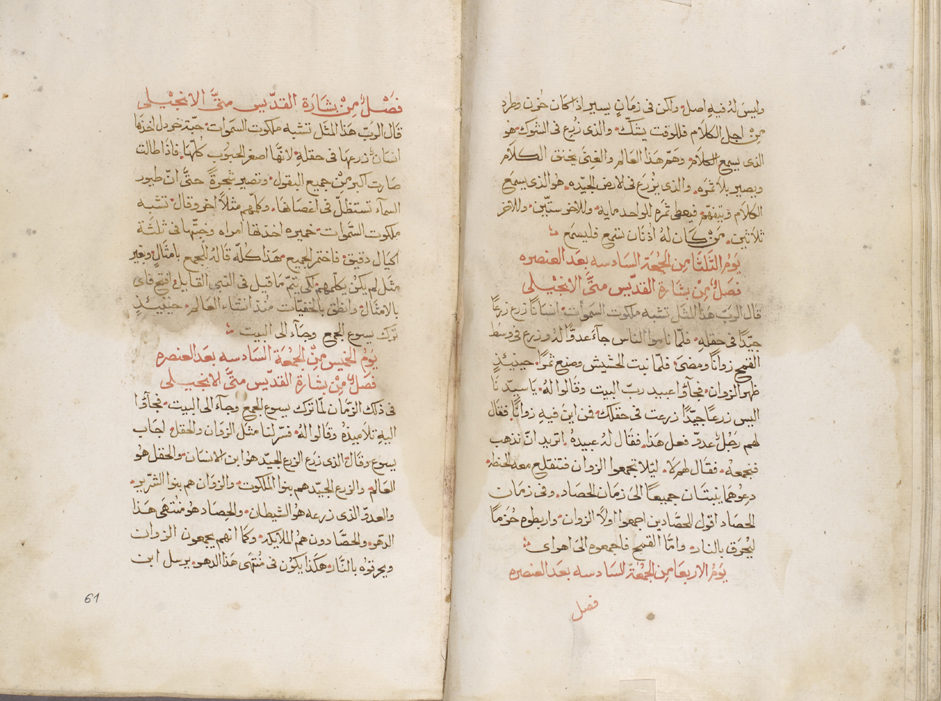 وليس له فيه اصل ولكن في زمان يسير اذا كان حزن وطرد
من اجل الكلام فللوقت يشك والذي زرع في الشوك هو
الذي يسمع الكلام وهم هذا العالم والغنى يخنق الكلام
ويصير بلا ثمره والذي يزرع في الارض الجيده هو الذي يسمع
الكلام ويتفهم فيعطى ثمره للواحد مايه وللاخر ستين وللاخر
ثلاثين من كان له اذنان تسمع فليسمع
يوم الثلثا من الجمعة السادسه بعد العنصره
فصل من بشارة القديس متى الانجيلى
قال الرب هذا المثل تشبه ملكوت السموات انسانًا زرع زرعًا
جيدًا في حقله فلما ناموا الناس جآء عدو له وزرع في وسط
القمح زوانًا ومضى فلما نبت الحشيش وصنع ثمرًا حينيذٍ
ظهر الزوان فجآوا عبيد رب البيت وقالوا له يا سيدنا
اليس زرعًا جيدًا زرعت في حقلك فمن اين فيه زوانًا فقال
لهم رجل عدو فعل هذا فقال له عبيده اتريد ان نذهب
فنجمعه فقال لهم لا ليلا تجمعوا الزوان فتنقلع معه الحنطه
دعوهما ينبتان جميعًا الى زمان الحصاد وفي زمان
الحصاد اقول للحصادين اجمعوا اولًا الزوان واربطوه حزمًا
ليحرق بالنار وامّا القمح فاجمعوه الى اهراى
يوم الاربعا من الجمعة السادسه بعد العنصره
فصل
فصل من بشارة القديس متى الانجيلى
قال الرب هذا المثل تشبه ملكوت السموات حبة خردل اخذها
انسان زرعها في حقله لانها اصغر الحبوب كلها فاذا طالت
صارت اكبر من جميع البقول وتصير شجرة حتى ان طيور
السمآء تستظل في اغصانها وكلمهم مثلًا اخر وقال تشبه
ملكوت السموات خميره اخذتها امراه وخبتها في ثلثة
اكيال دقيق فاختمر الجميع هذا كله قاله للجمع بامثال وبغير
مثل لم يكن يكلمهم لكي يتم ما قيل في النبي القايل افتح فاى
بالامثال وانطق بالمخفيات منذ انشاء العالم حينيذٍ
ترك يسوع الجمع وجآء الى البيت
يوم الخميس من الجمعة السادسه بعد العنصره
فصل من بشارة القديس متى الانجيلى
في ذلك الزمان لما ترك يسوع الجمع وجآء الى البيت فجآوا
اليه تلاميذه وقالوا له فسر لنا مثل الزوان والحقل اجاب
يسوع وقال الذي زرع الزرع الجيد هو ابن الانسان والحقل هو
العالم والزرع الجيد هم بنوا الملكوت والزوان هم بنوا الشرير
والعدو الذي زرعه هو الشيطان والحصاد هو منتهى هذا
الدهر والحصادون هم الملايكه وكما انهم يجمعون الزوان
ويحرقوه بالنار هكذا يكون في منتهى هذا الدهر يرسل ابن
61